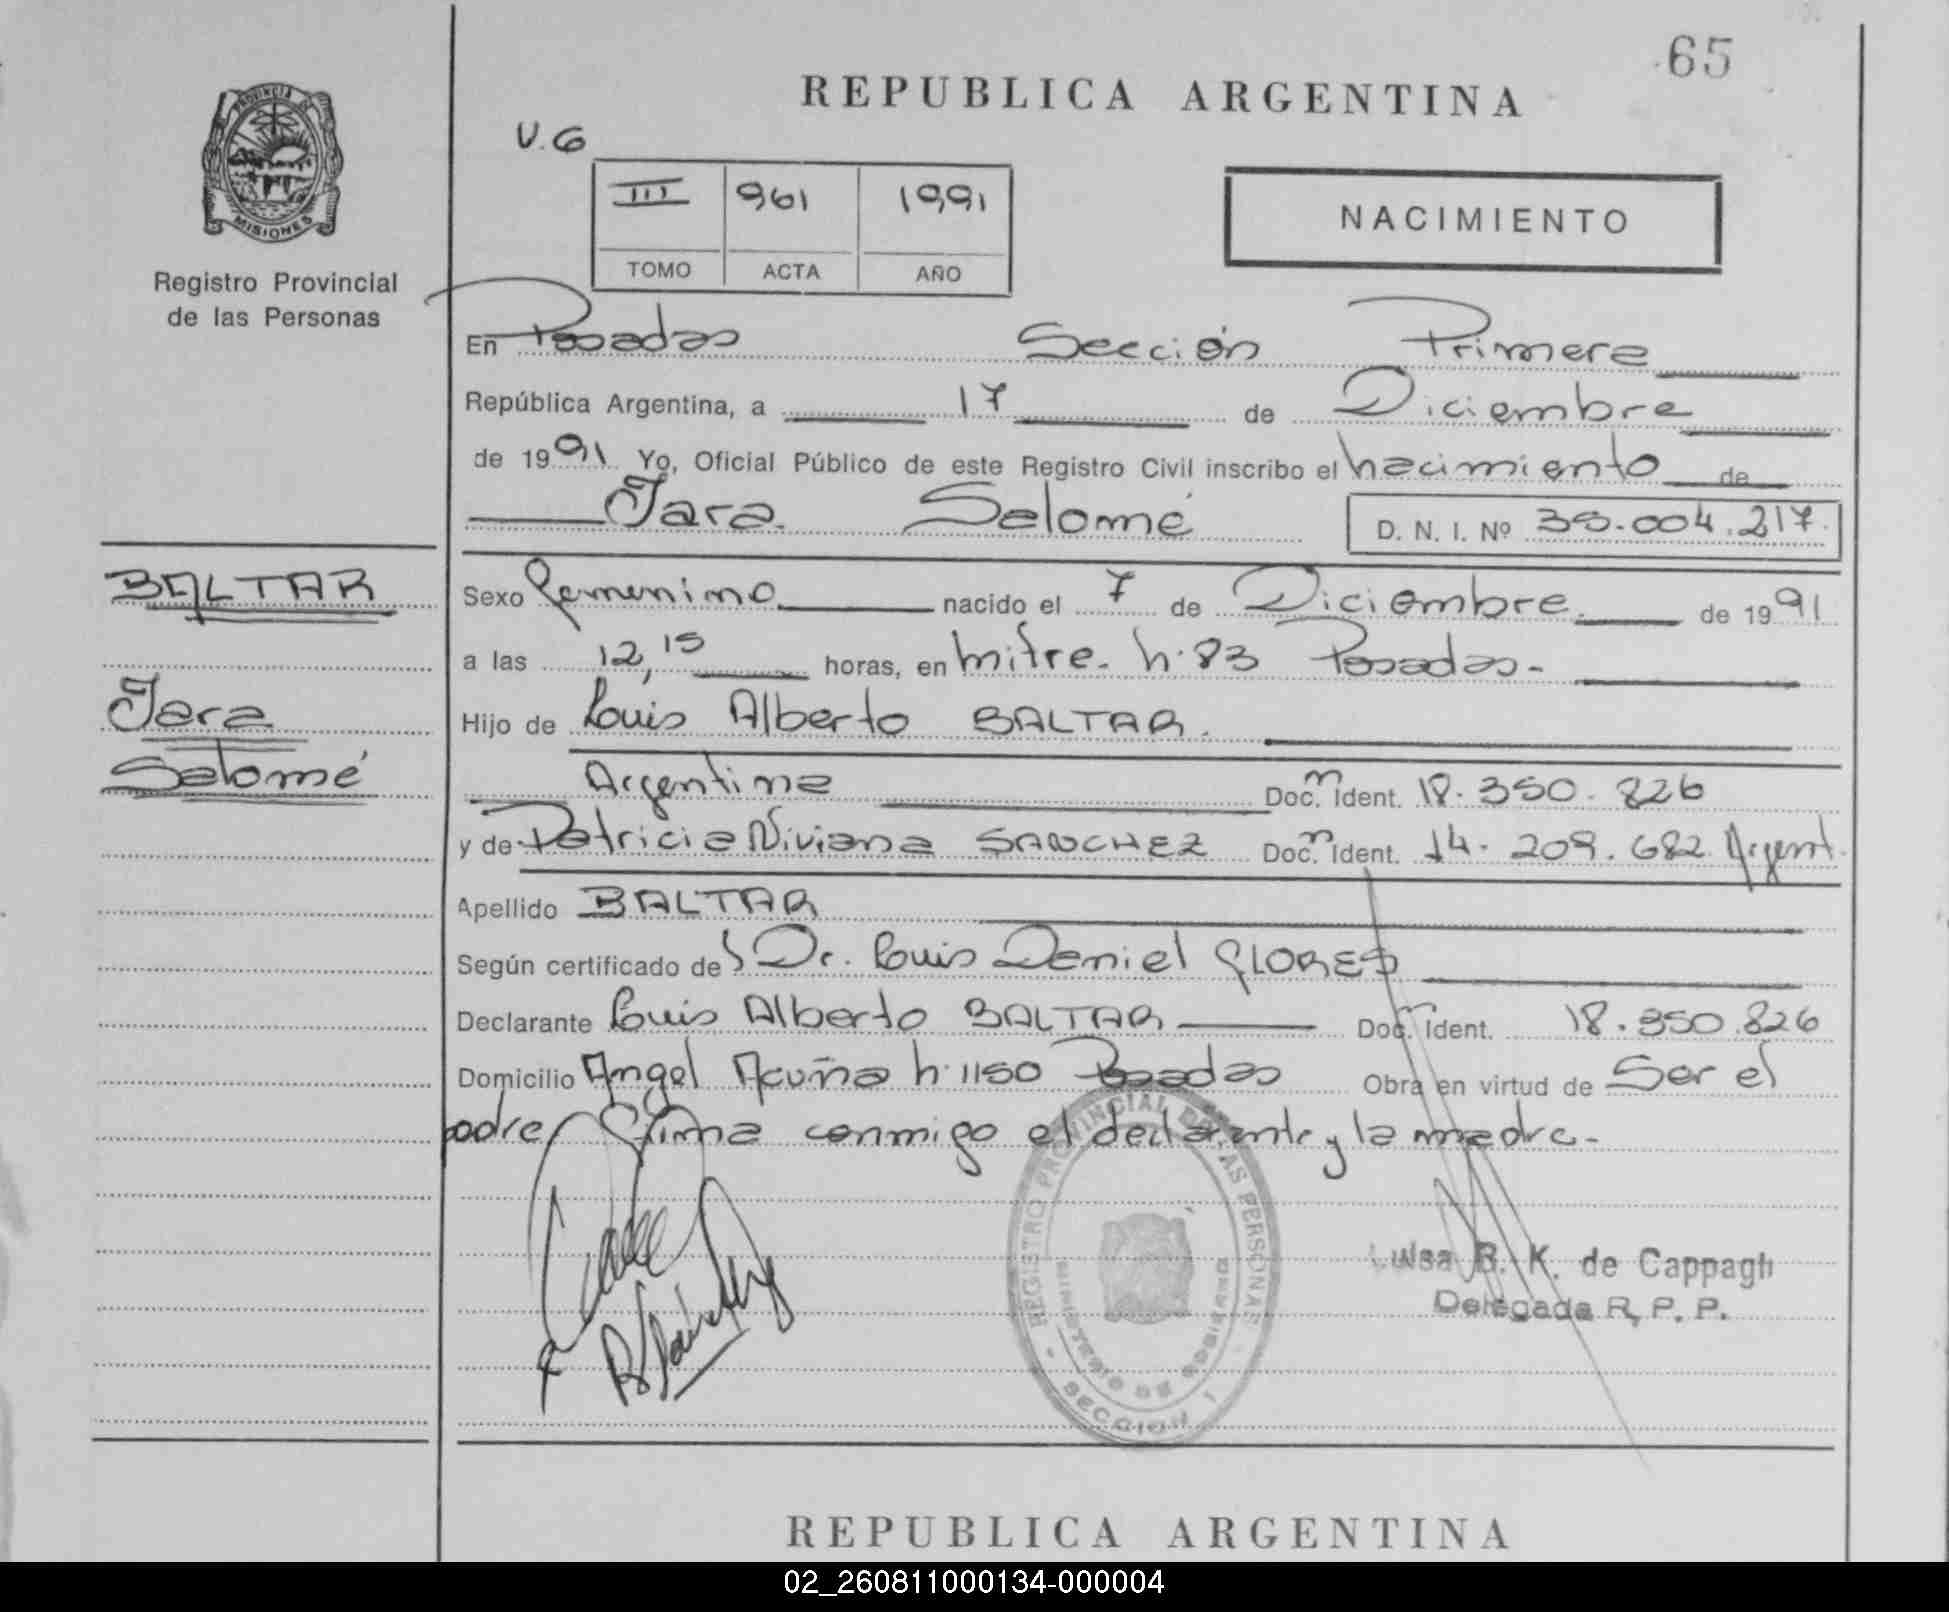 65
REPUBLICA ARGENTINA
PROVINCIA DE
MISIONES
Registro Provincial
de las Personas
V.G
III 961 1991
TOMO ACTA AÑO
NACIMIENTO
En Posadas Sección Primera
República Argentina, a 17 de Diciembre
de 1991 Yo, Oficial Público de este Registro Civil inscribo el nacimiento de
Jara Salomé D. N. I. Nº .004.217.
BALTAR
Sexo Femenino nacido el 7 de Diciembre de 1991
a las 12,15 horas, en mitre. n.83 Posadas.-
Jara
Hijo de Louis Alberto BALTAR.
Salomé
Argentina Doc. n Ident. 18.350.826
y de Patricia Viviana SANCHEZ Doc. n Ident. 14.209.682 Argent.
Apellido BALTAR
Según certificado de Dr. Louis Daniel FLORES
Declarante Louis Alberto BALTAR Doc. n Ident. 18.350.826
Domicilio Angel Acuña n.1150 Posadas Obra en virtud de Ser el
padre Firma conmigo el declarante y la madre.-
REGISTRO PROVINCIAL DE LAS PERSONAS
MINISTERIO DE GOBIERNO
SECCION 1
Luisa B. K. de Cappagli
Delegada R. P. P.
REPUBLICA ARGENTINA
02_260811000134-000004